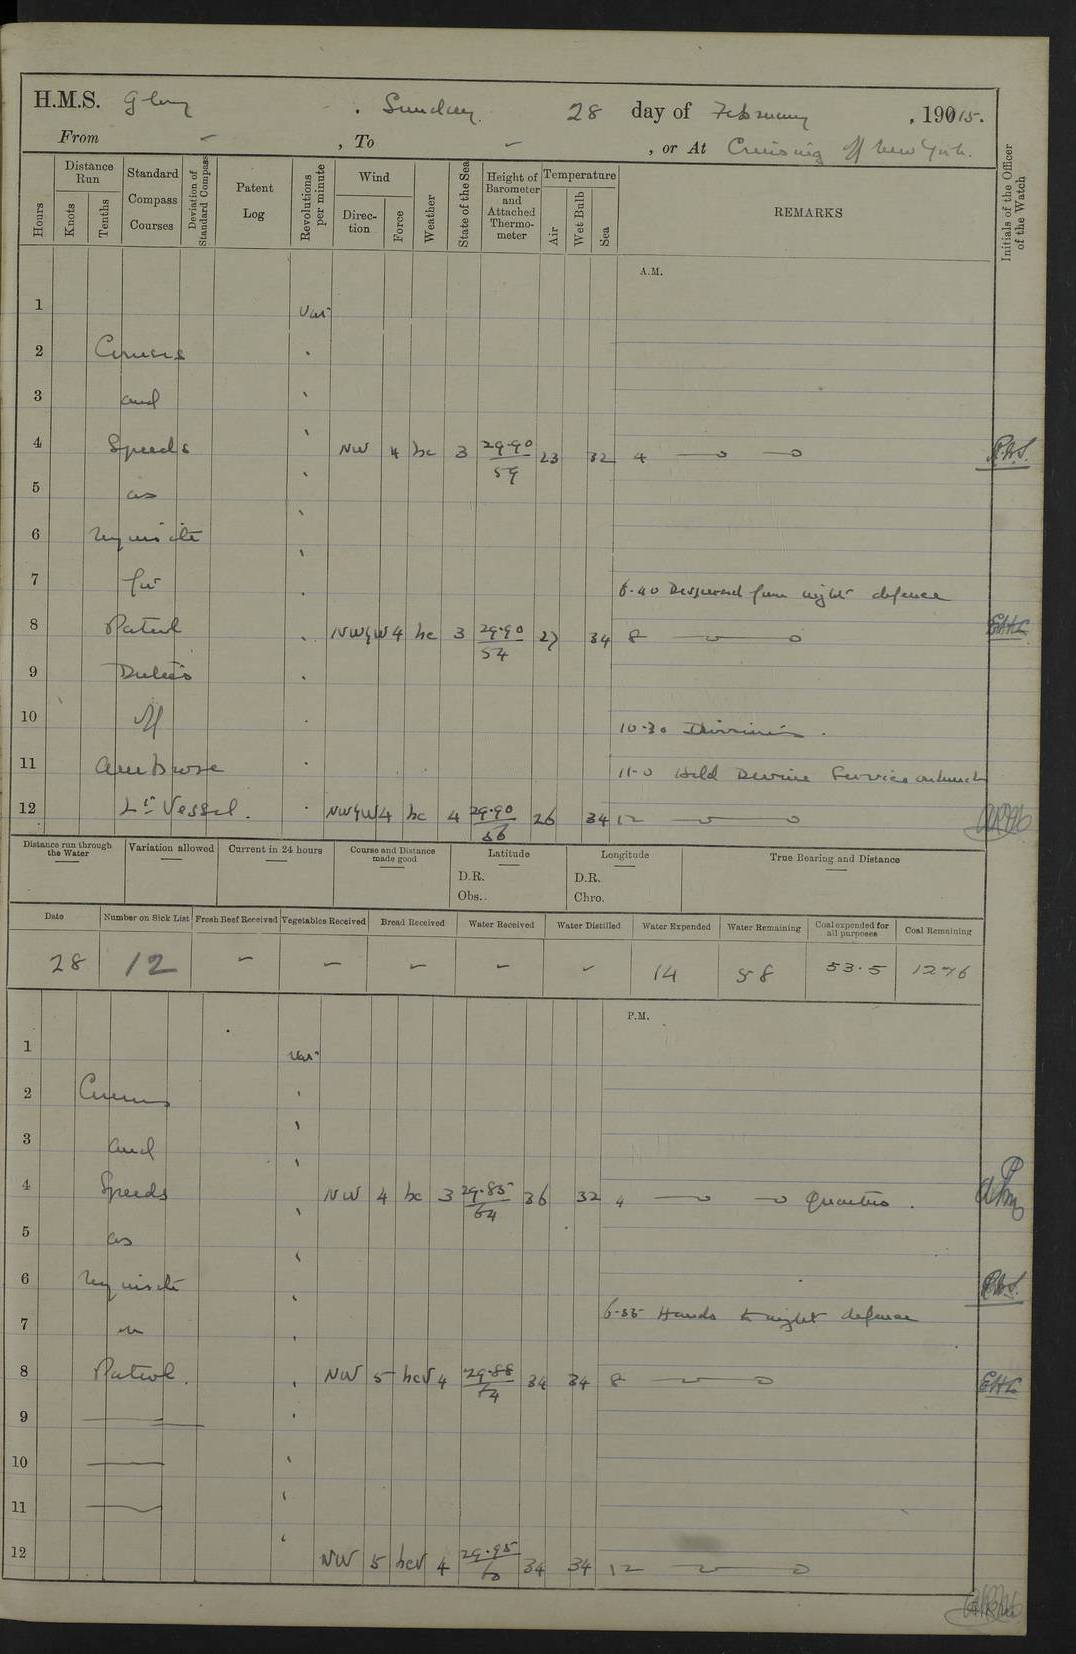 H.M.S. Glory , Sunday 28 day of February , 19015.
From - , To - , or At Cruising off New York.
Hours
Distance Run
Knots
Tenths
Standard Compass Courses
Deviation of Standard Compass
Patent Log
Revolutions per minute
Wind
Direction
Force
Weather
State of the Sea
Height of Barometer and Attached Thermometer
Temperature
Air
Wet Bulb
Sea
REMARKS
Initials of the Officer of the Watch
A.M.
1 Var
2 Courses
3 and
4 Speeds NW 4 bc 3 29.90 59 23 32 4 R.W.S.
5 as
6 requisite
7 for 6.40 Dispersed from night defence
8 Patrol NW½W 4 bc 3 29.90 54 27 34 8 EHC
9 Duties
10 off 10.30 Divisions.
11 Ambrose 11-0 Held Divine Service on
12 Lt Vessel. NW½W 4 bc 4 29.90 56 26 34 12
Distance run through the Water
Variation allowed
Current in 24 hours
Course and Distance made good
Latitude
D.R.
Obs.
Longitude
D.R.
Chro.
True Bearing and Distance
Date Number on Sick List Fresh Beef Received Vegetables Received Bread Received Water Received Water Distilled Water Expended Water Remaining Coal expended for all purposes Coal Remaining
28 12 - - - - - 14 98 53.5 1276
P.M.
1 Var
2 Courses
3 and
4 Speeds NW 4 bc 3 29.85 64 36 32 4 Quarters.
5 as
6 requisite R.W.S.
6-35 Hands to night defence
7 on
8 Patrol. NW 5 bcv 4 29.88 64 34 34 8 EHC
9
10
11
12 NW 5 bcv 4 29.95 60 34 34 12